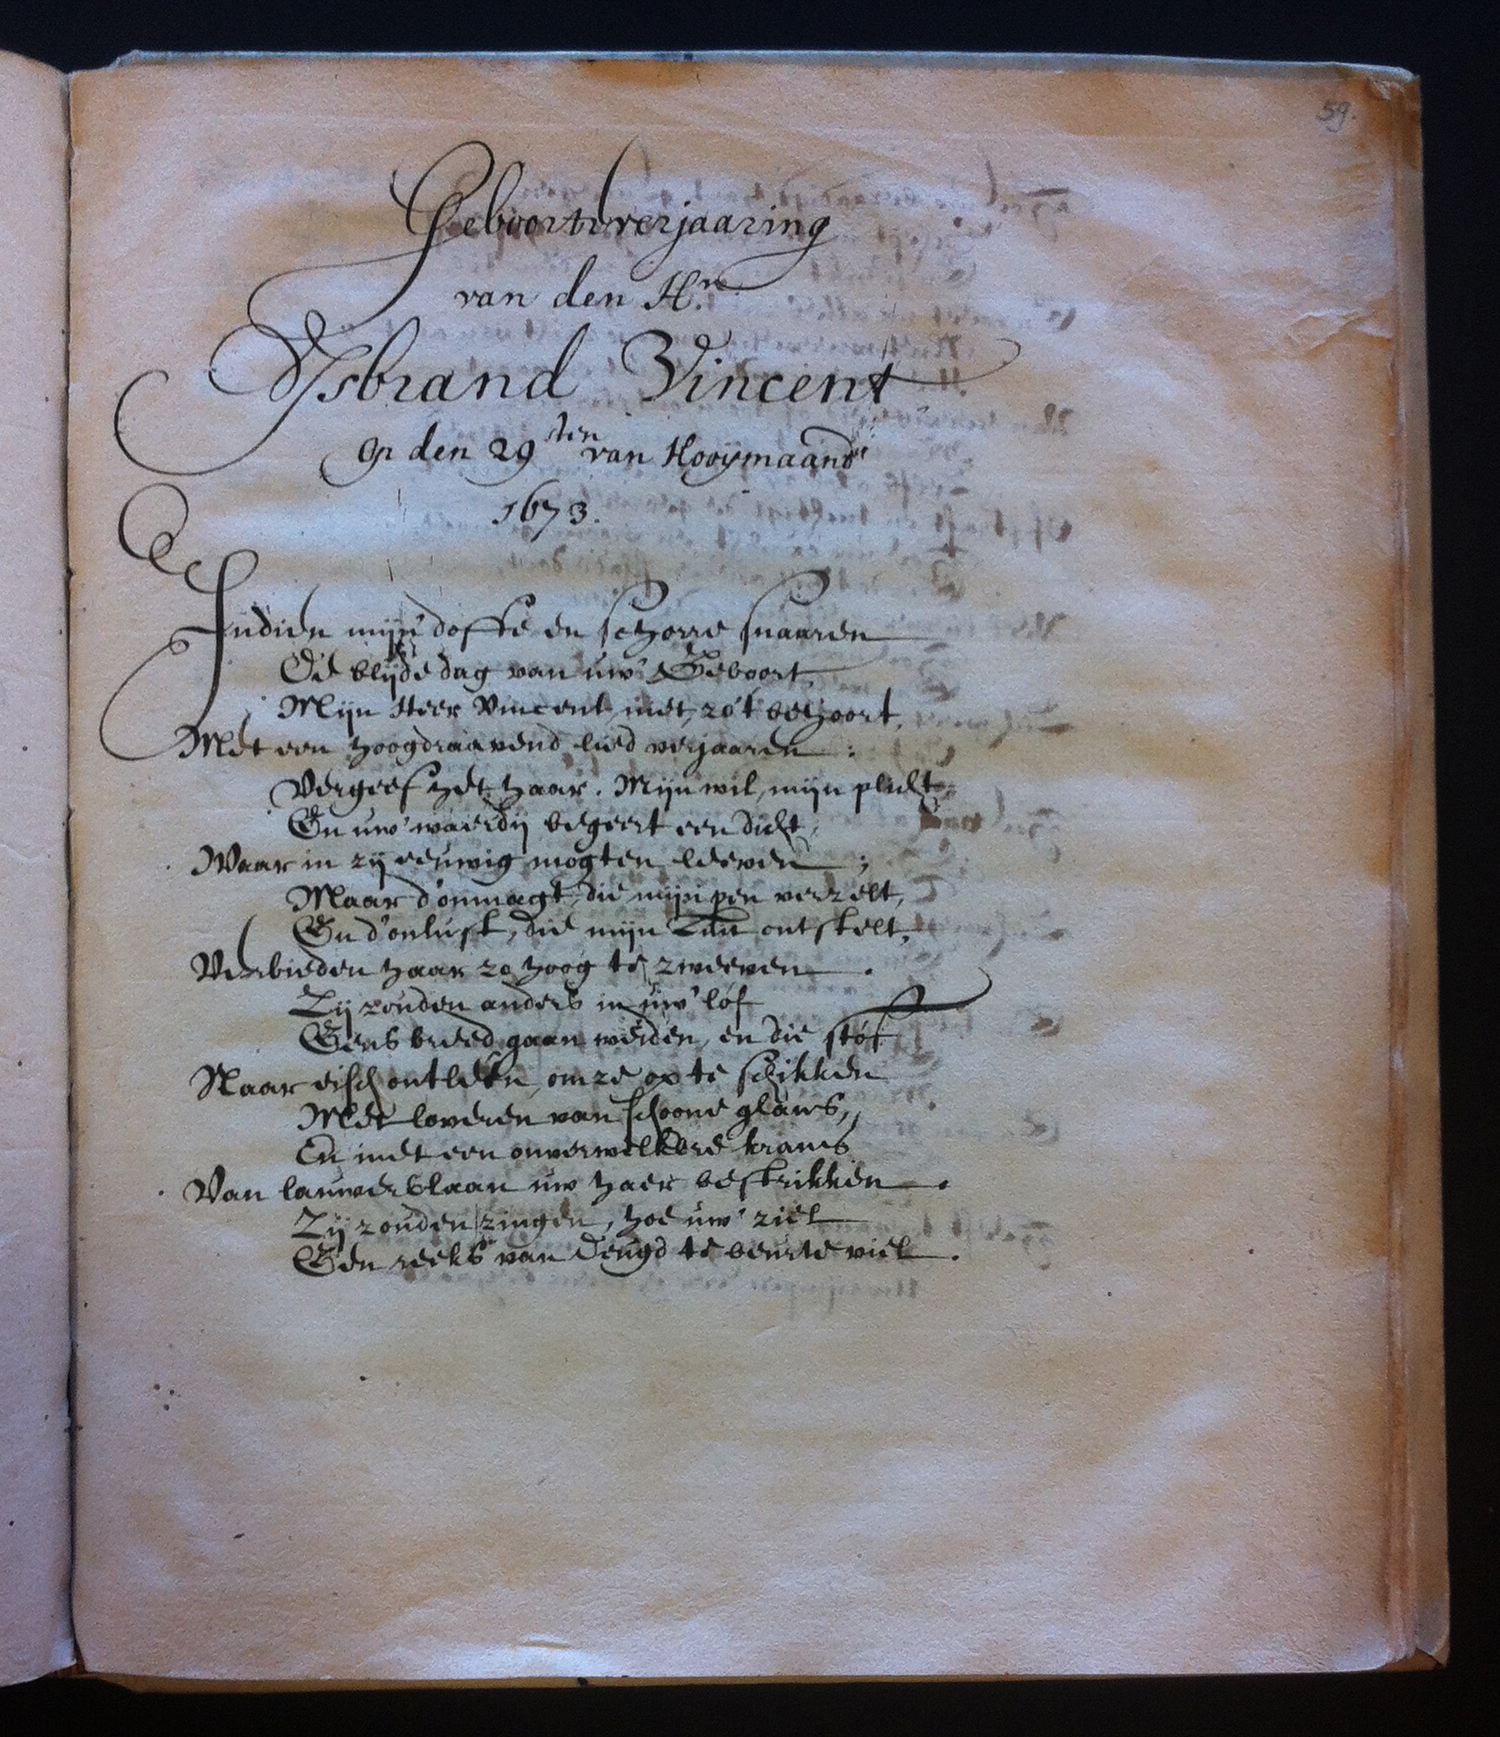 59.
Geboorteverjaaring
van den Hr.
Ysbrand Vincent
Op den 29sten van Hooymaand
1673.
Indien mijn' doffe en schorre snaaren
De blijde dag van uw' Geboort,
Mijn Heer Vincent, niet, zo 't behoort,
Met een hoogdraavend lied verjaaren:
Vergeef het haar. Mijn wil, mijn plicht,
En uw' waerdij begeert een dicht,
Waar in zij eeuwig mogten leeven;
Maar d'onmagt, die mijn pen verzelt,
En d'onlust, die mijn zin ontstelt,
Verbieden haar zo hoog te zweeven.
Zij zouden anders in uw' lof
Eens breed gaan weiden, en die stof
Naar eisch ontleên, om ze op te schikken
Met loveren van schoone glans,
En met een onverwelkbre krans
Van lauwerblaan uw haer bestrikken.
Zij zouden zingen, hoe uw' ziel
Een reeks van deugd te beurte viel.